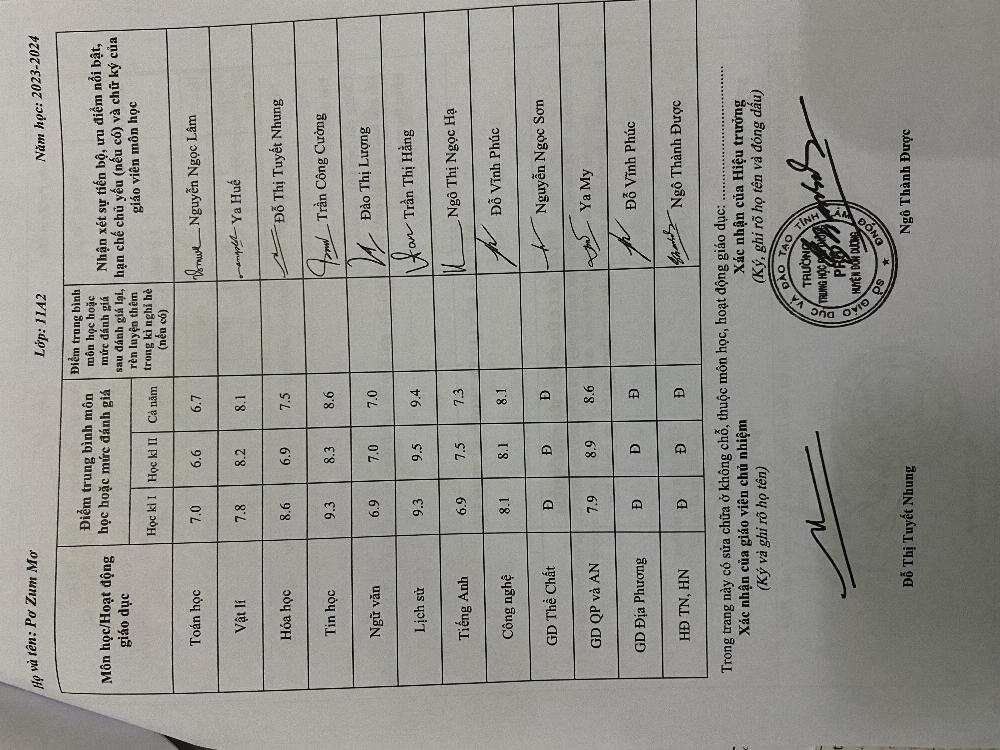 Họ và tên: Pơ Zum Mơ Lớp: 11A2 Năm học: 2023-2024
Môn học/Hoạt động giáo dục
Điểm trung bình môn học hoặc mức đánh giá
Học kì I Học kì II Cả năm
Điểm trung bình môn học hoặc mức đánh giá sau đánh giá lại, rèn luyện thêm trong kì nghỉ hè (nếu có)
Nhận xét sự tiến bộ, ưu điểm nổi bật, hạn chế chủ yếu (nếu có) và chữ ký của giáo viên môn học
Toán học 7.0 6.6 6.7 Nguyễn Ngọc Lâm
Vật lí 7.8 8.2 8.1 Ya Huế
Hóa học 8.6 6.9 7.5 Đỗ Thị Tuyết Nhung
Tin học 9.3 8.3 8.6 Trần Công Cường
Ngữ văn 6.9 7.0 7.0 Đào Thị Lượng
Lịch sử 9.3 9.5 9.4 Trần Thị Hằng
Tiếng Anh 6.9 7.5 7.3 Ngô Thị Ngọc Hạ
Công nghệ 8.1 8.1 8.1 Đỗ Vĩnh Phúc
GD Thể Chất Đ Đ Đ Nguyễn Ngọc Sơn
GD QP và AN 7.9 8.9 8.6 Ya My
GD Địa Phương Đ Đ Đ Đỗ Vĩnh Phúc
HĐ TN, HN Đ Đ Đ Ngô Thành Được
Trong trang này có sửa chữa ở không chỗ, thuộc môn học, hoạt động giáo dục: ........................
Xác nhận của giáo viên chủ nhiệm
(Ký và ghi rõ họ tên)
Xác nhận của Hiệu trưởng
(Ký, ghi rõ họ tên và đóng dấu)
SỞ GIÁO DỤC VÀ ĐÀO TẠO TỈNH LÂM ĐỒNG
TRƯỜNG
TRUNG HỌC
HUYỆN ĐƠN DƯƠNG
Đỗ Thị Tuyết Nhung
Ngô Thành Được